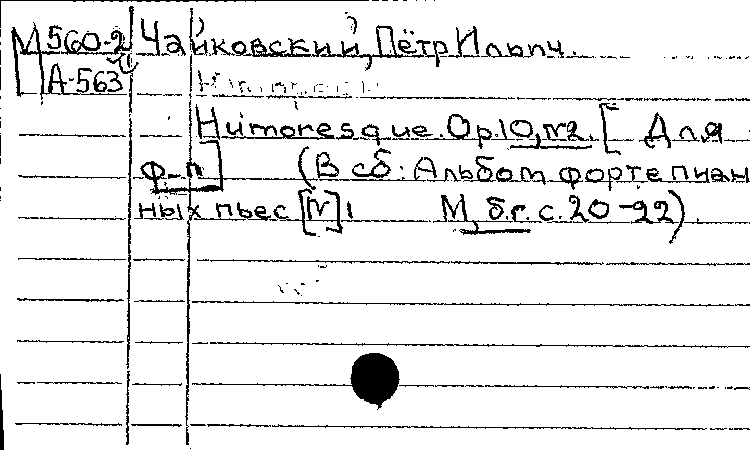 М 560-2 Чайковский, Пётр Ильич.
А-563
Humoresque. Op.10, №2. [Для
ф-п] (В сб: Альбом фортепиан
ных пьес [№] 1 М, б.г. с. 20-22).